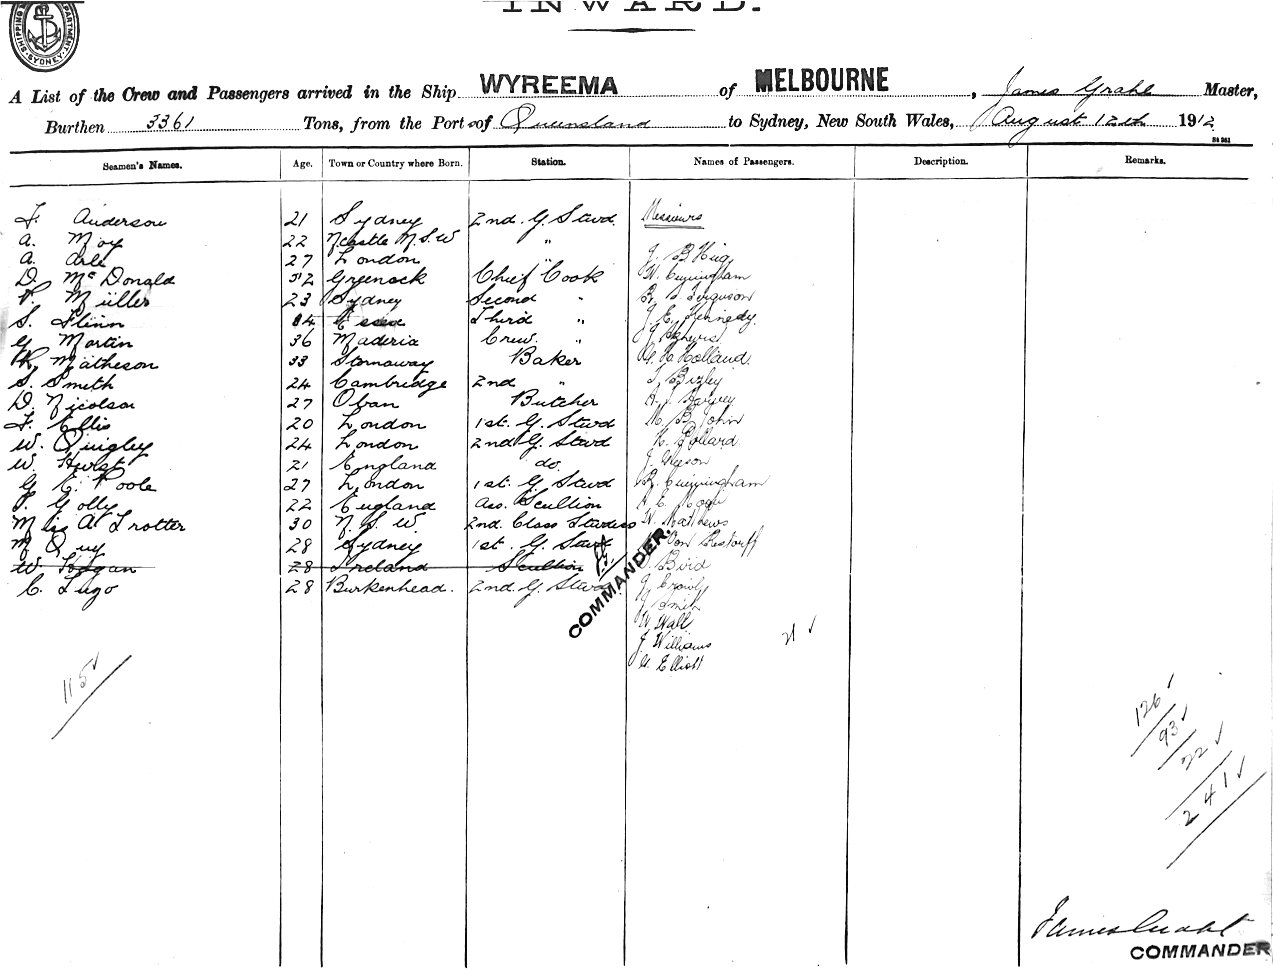 INWARD.
SHIPPING DEPARTMENT SYDNEY
A List of the Crew and Passengers arrived in the Ship WYREEMA of MELBOURNE, James Grahl Master,
Burthen 3361 Tons, from the Port of Queensland to Sydney, New South Wales, August 12th 1912
Seamen's Names. Age. Town or Country where Born. Station. Names of Passengers. Description. Remarks.
Messieurs
F. Anderson 21 Sydney 2nd. G. Stwd.
A. Moy 22 N.castle N.S.W "
A. 27 London "
D. McDonald 52 Greenock Chief Cook
Müller 23 Sydney Second "
S. Flinn Third "
G. Martin 36 Maderia Crew. "
Matheson 33 Stornaway Baker
S. Smith 24 Cambridge 2nd "
D. Nicolson 27 Oban Butcher
F. Ellis 20 London 1st. G. Stwd
W. Quigley 24 London 2nd G. Stwd
W. Hurst 21 England do.
G. E. Poole 27 London 1st. G. Stwd
Golly 22 England Ass. Scullion
Mrs A Trotter 30 N. S. W 2nd. Class
M Quy 28 Sydney 1st. G. Stwd
W 28 Ireland Scullion
C. Lugo 28 Burkenhead. 2nd. G. Stwd
J. B King
W. Cunningham
Ferguson
J. E. Kennedy.
Holland
Bixley
Harvey
M. B. John
Pollard
J.
R. Cunningham
W. Mathews
Von
Bird
J
J Smith
W Wall
J. Williams
Elliott
COMMANDER.
21 ✓
115 ✓
126 ✓
93 ✓
22 ✓
241 ✓
James Grahl
COMMANDER